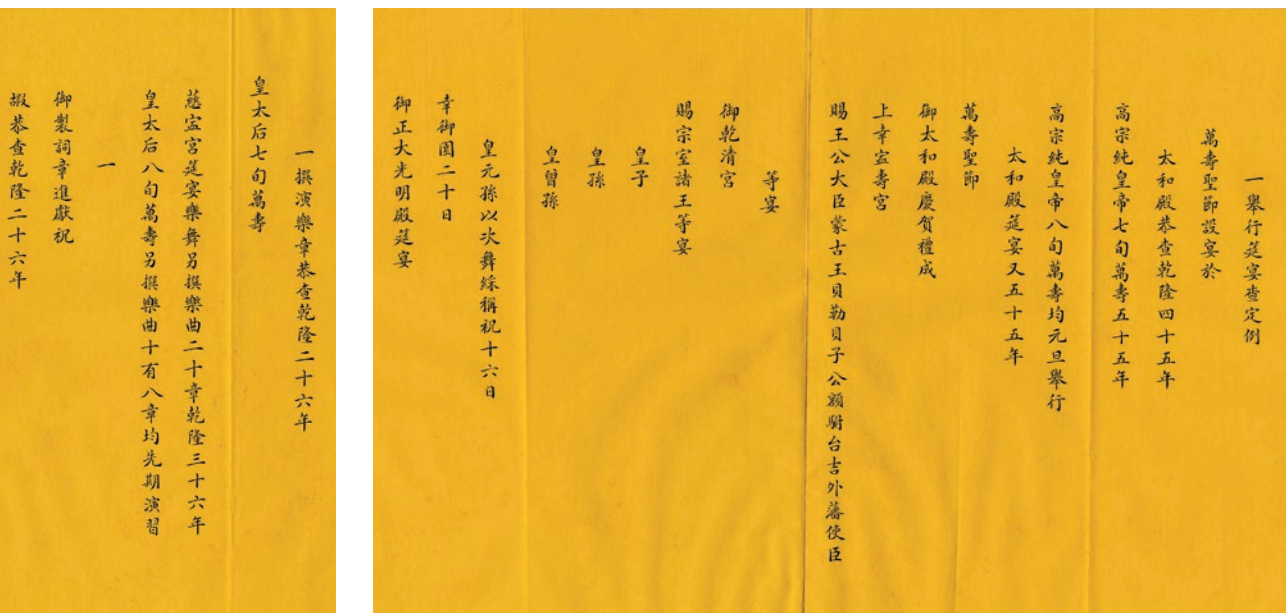 一舉行筵宴查定例
萬壽聖節設宴於
太和殿恭查乾隆四十五年
高宗純皇帝七旬萬壽五十五年
高宗純皇帝八旬萬壽均元旦舉行
太和殿筵宴又五十五年
萬壽聖節
御太和殿慶賀禮成
上幸寍壽宮
賜王公大臣蒙古王貝勒貝子公額駙台吉外藩使臣
等宴
御乾清宮
賜宗室諸王等宴
皇子
皇孫
皇曾孫
皇元孫以次舞綵稱祝十六日
幸御園二十日
御正大光明殿筵宴
一撰演樂章恭查乾隆二十六年
皇太后七旬萬壽
慈寍宮筵宴樂舞另撰樂曲二十章乾隆三十六年
皇太后八旬萬壽另撰樂曲十有八章均先期演習
一
御製詞章進獻祝
嘏恭查乾隆二十六年